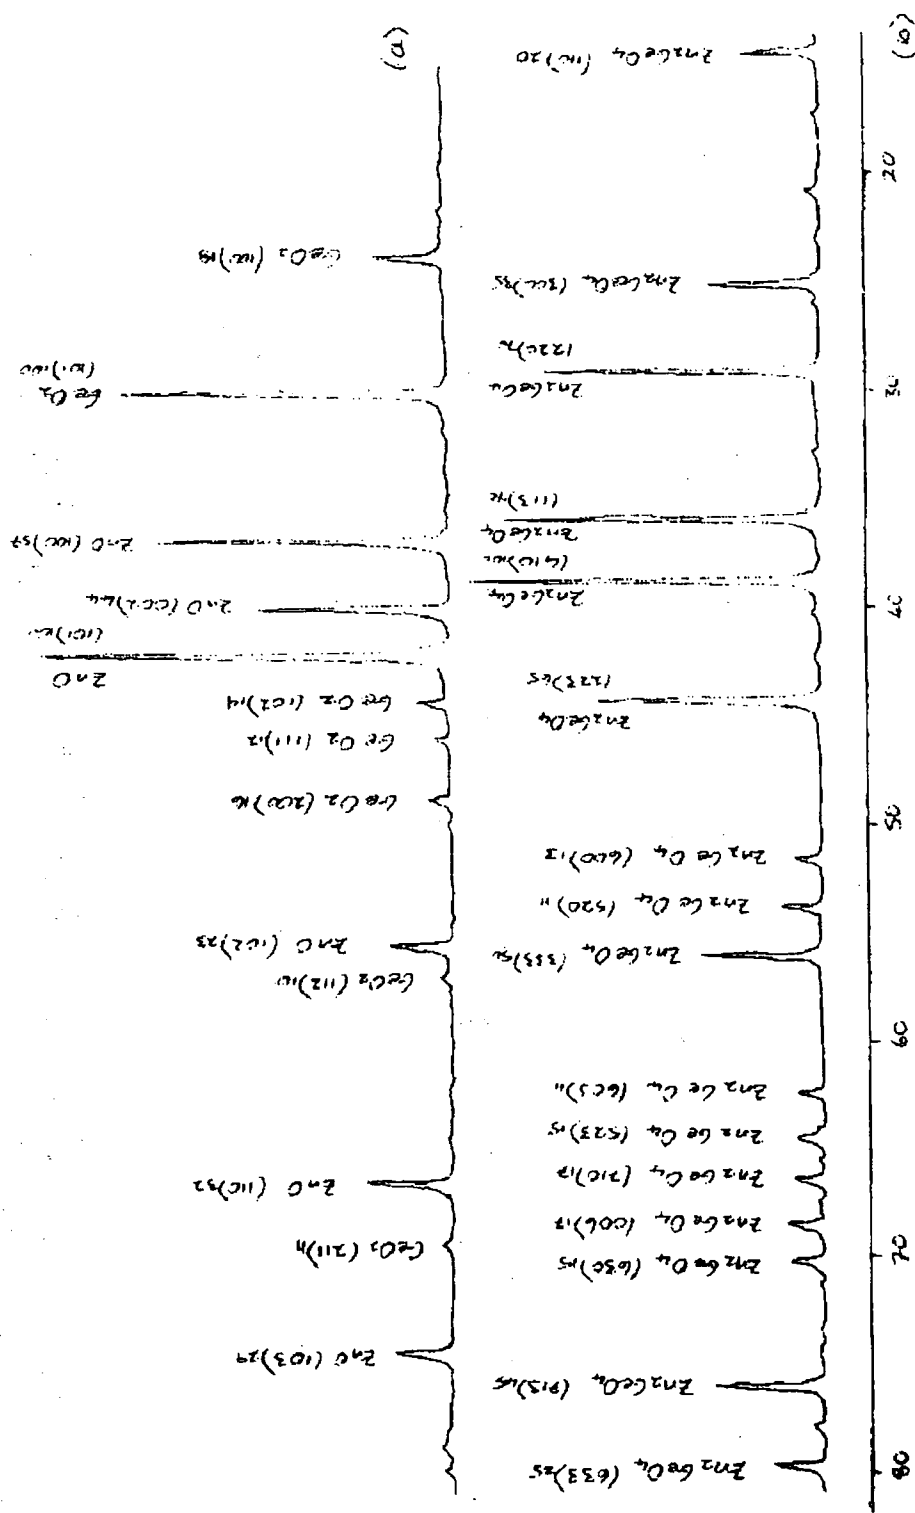 (a)
GeO2 (100)18
GeO2
(101)100
ZnO (100)57
ZnO (002)44
ZnO
(101)100
GeO2 (102)14
GeO2 (111)12
GeO2 (200)16
ZnO (102)23
GeO2 (112)10
ZnO (110)32
GeO2 (211)11
ZnO (103)29
(b)
Zn2GeO4 (110)20
Zn2GeO4 (300)35
Zn2GeO4
(220)
Zn2GeO4
(113)
Zn2GeO4
(410)
Zn2GeO4
(223)65
Zn2GeO4 (600)13
Zn2GeO4 (520)11
Zn2GeO4 (333)50
Zn2GeO4 (603)11
Zn2GeO4 (523)15
Zn2GeO4 (710)17
Zn2GeO4 (006)17
Zn2GeO4 (630)15
Zn2GeO4 (713)45
Zn2GeO4 (633)25
20
30
40
50
60
70
80